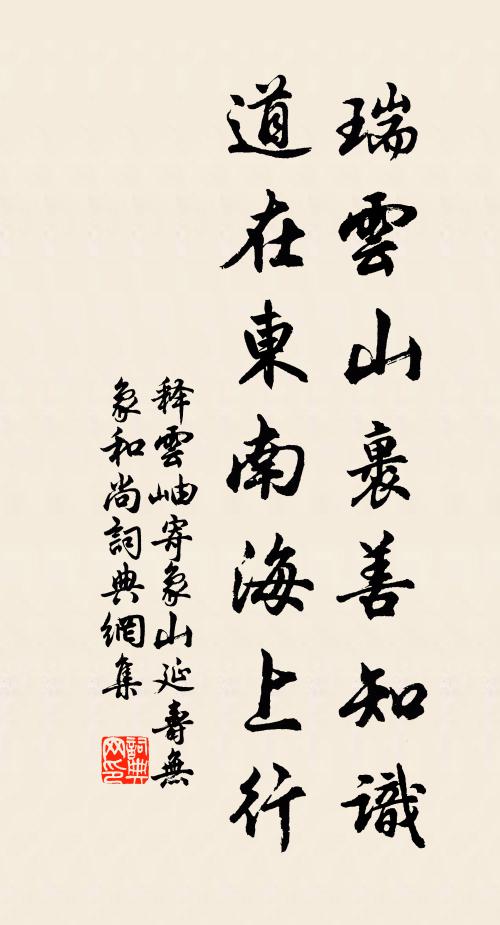 瑞雲山裏善知識
道在東南海上行
释雲岫寄象山延壽無
象和尚詞典網集
詞典网印